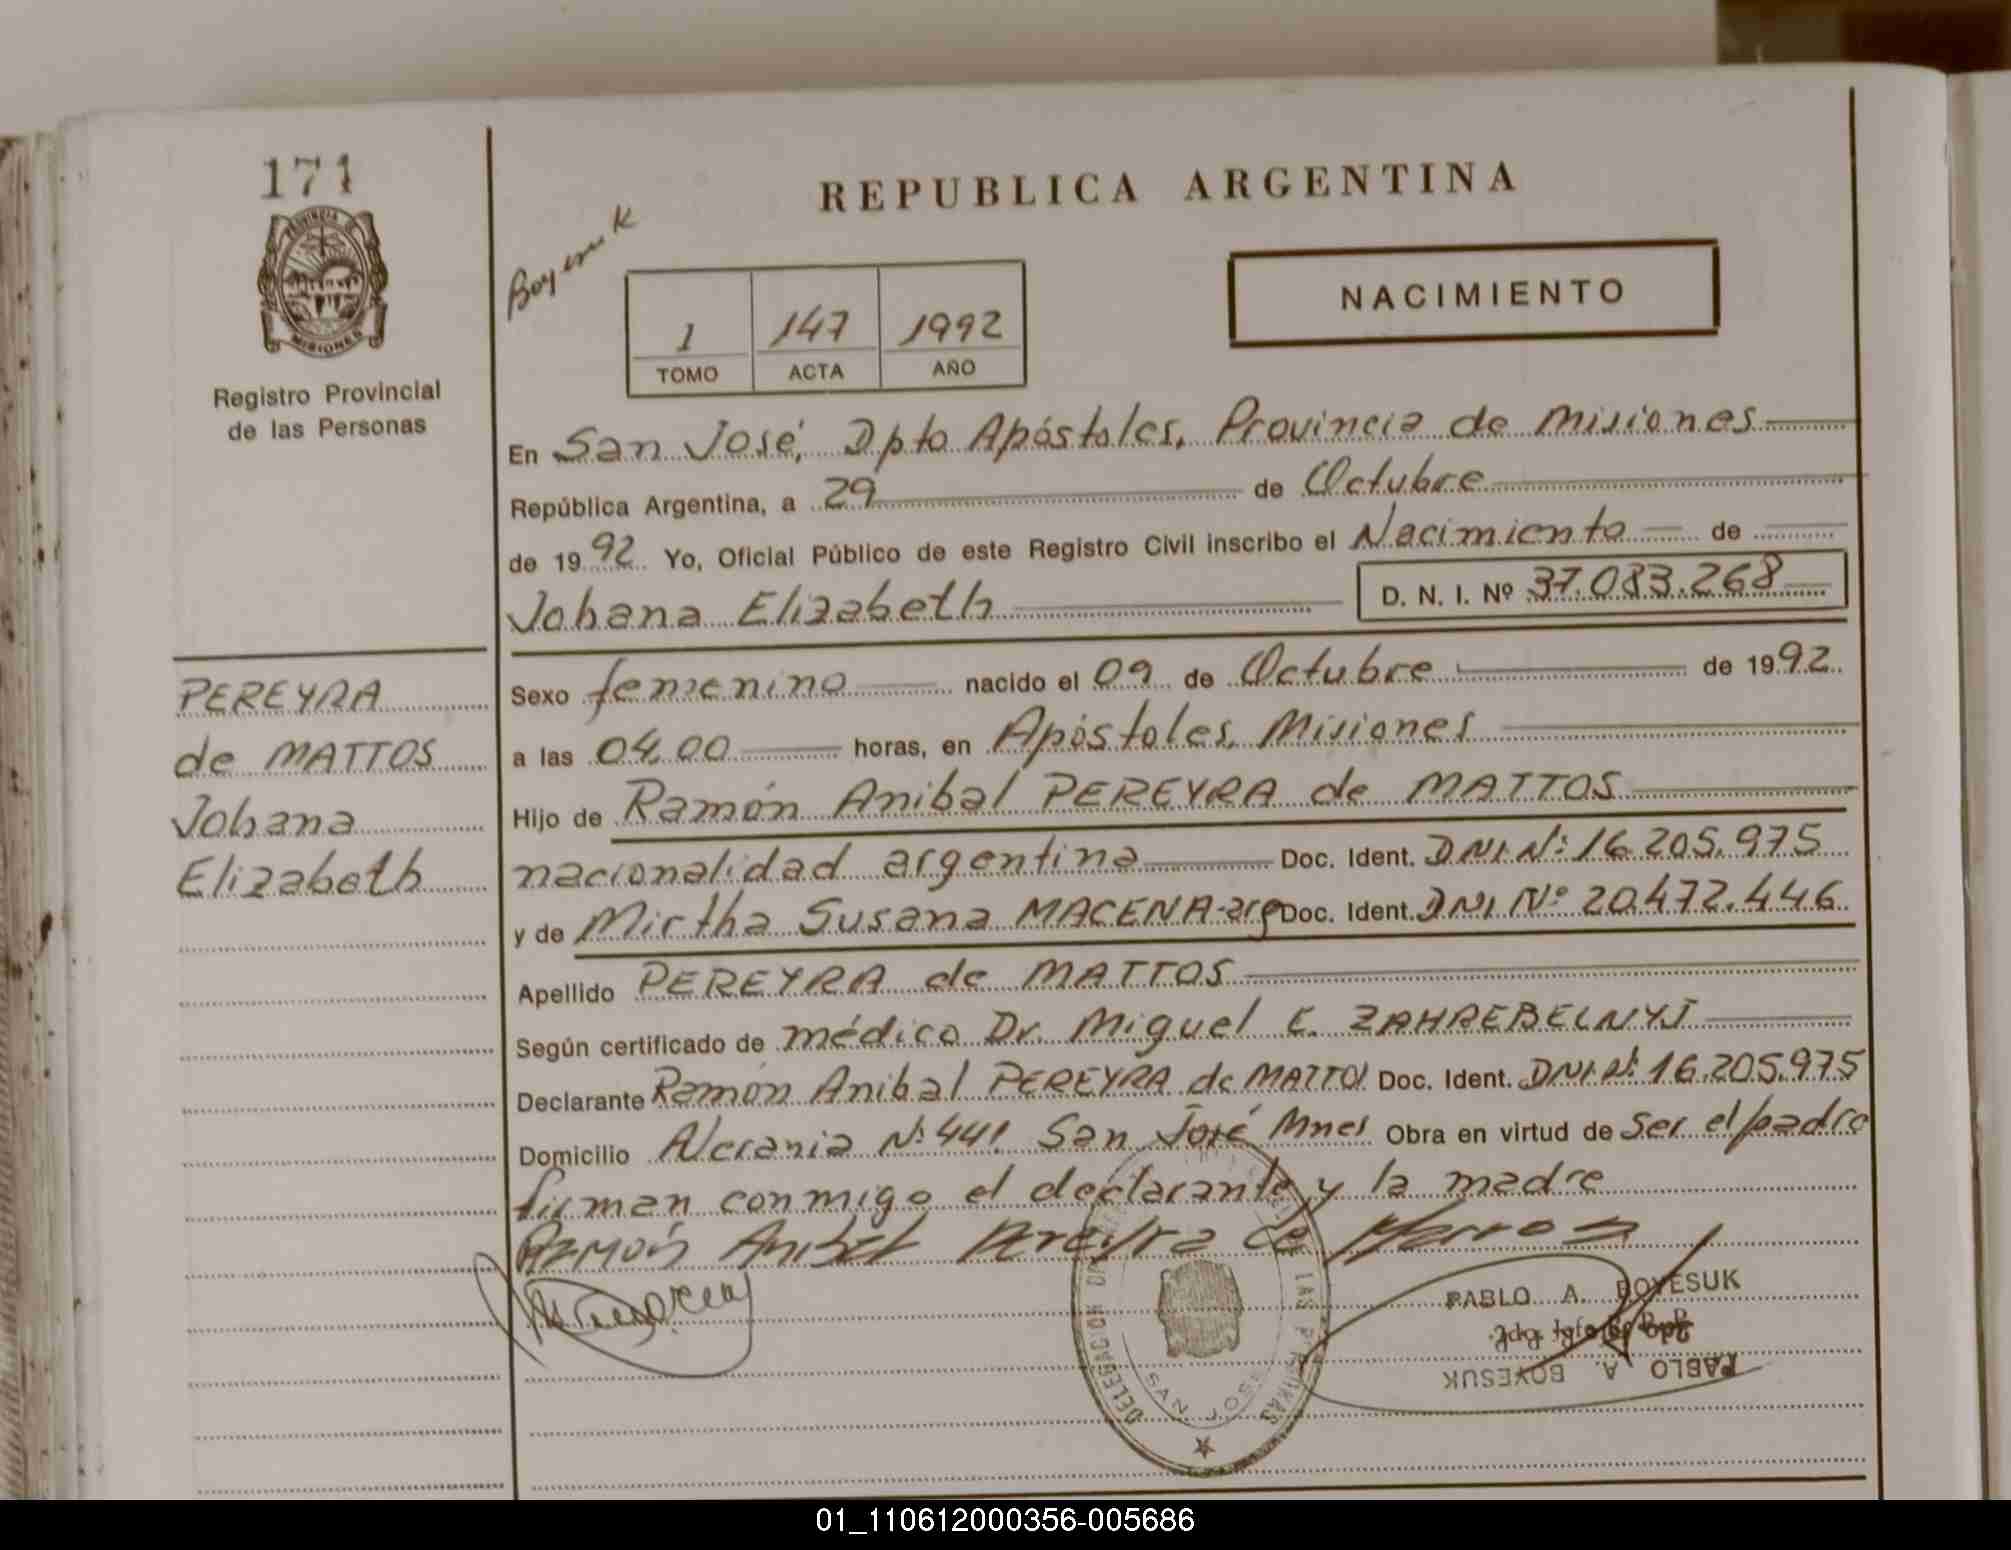 171
PROVINCIA DE
MISIONES
Registro Provincial
de las Personas
REPUBLICA ARGENTINA
NACIMIENTO
1 147 1992
TOMO ACTA AÑO
En San José, Dpto Apóstoles, Provincia de Misiones
República Argentina, a 29 de Octubre
de 1992. Yo, Oficial Público de este Registro Civil inscribo el Nacimiento de
Johana Elizabeth D. N. I. Nº 37.083.268
PEREYRA
de MATTOS
Johana
Elizabeth
Sexo femenino nacido el 09 de Octubre de 1992.
a las 04,00 horas, en Apóstoles, Misiones
Hijo de Ramón Anibal PEREYRA de MATTOS
nacionalidad argentina Doc. Ident. DNI. Nº: 16.205.975
y de Mirtha Susana MACENA-arg Doc. Ident. DNI Nº 20.472.446
Apellido PEREYRA de MATTOS
Según certificado de médico Dr. Miguel E. ZAHREBELNYJ
Declarante Ramón Anibal PEREYRA de MATTOS Doc. Ident. DNI. Nº: 16.205.975
Domicilio Alcrania Nº: 441 San José Mnes Obra en virtud de ser el padre
firman conmigo el declarante y la madre
Ramón Anibal Pereyra de Mattos
DELEGACION DE LAS PERSONAS
SAN JOSE
PABLO A. BOYESUK
PABLO A. BOYESUK
01_110612000356-005686